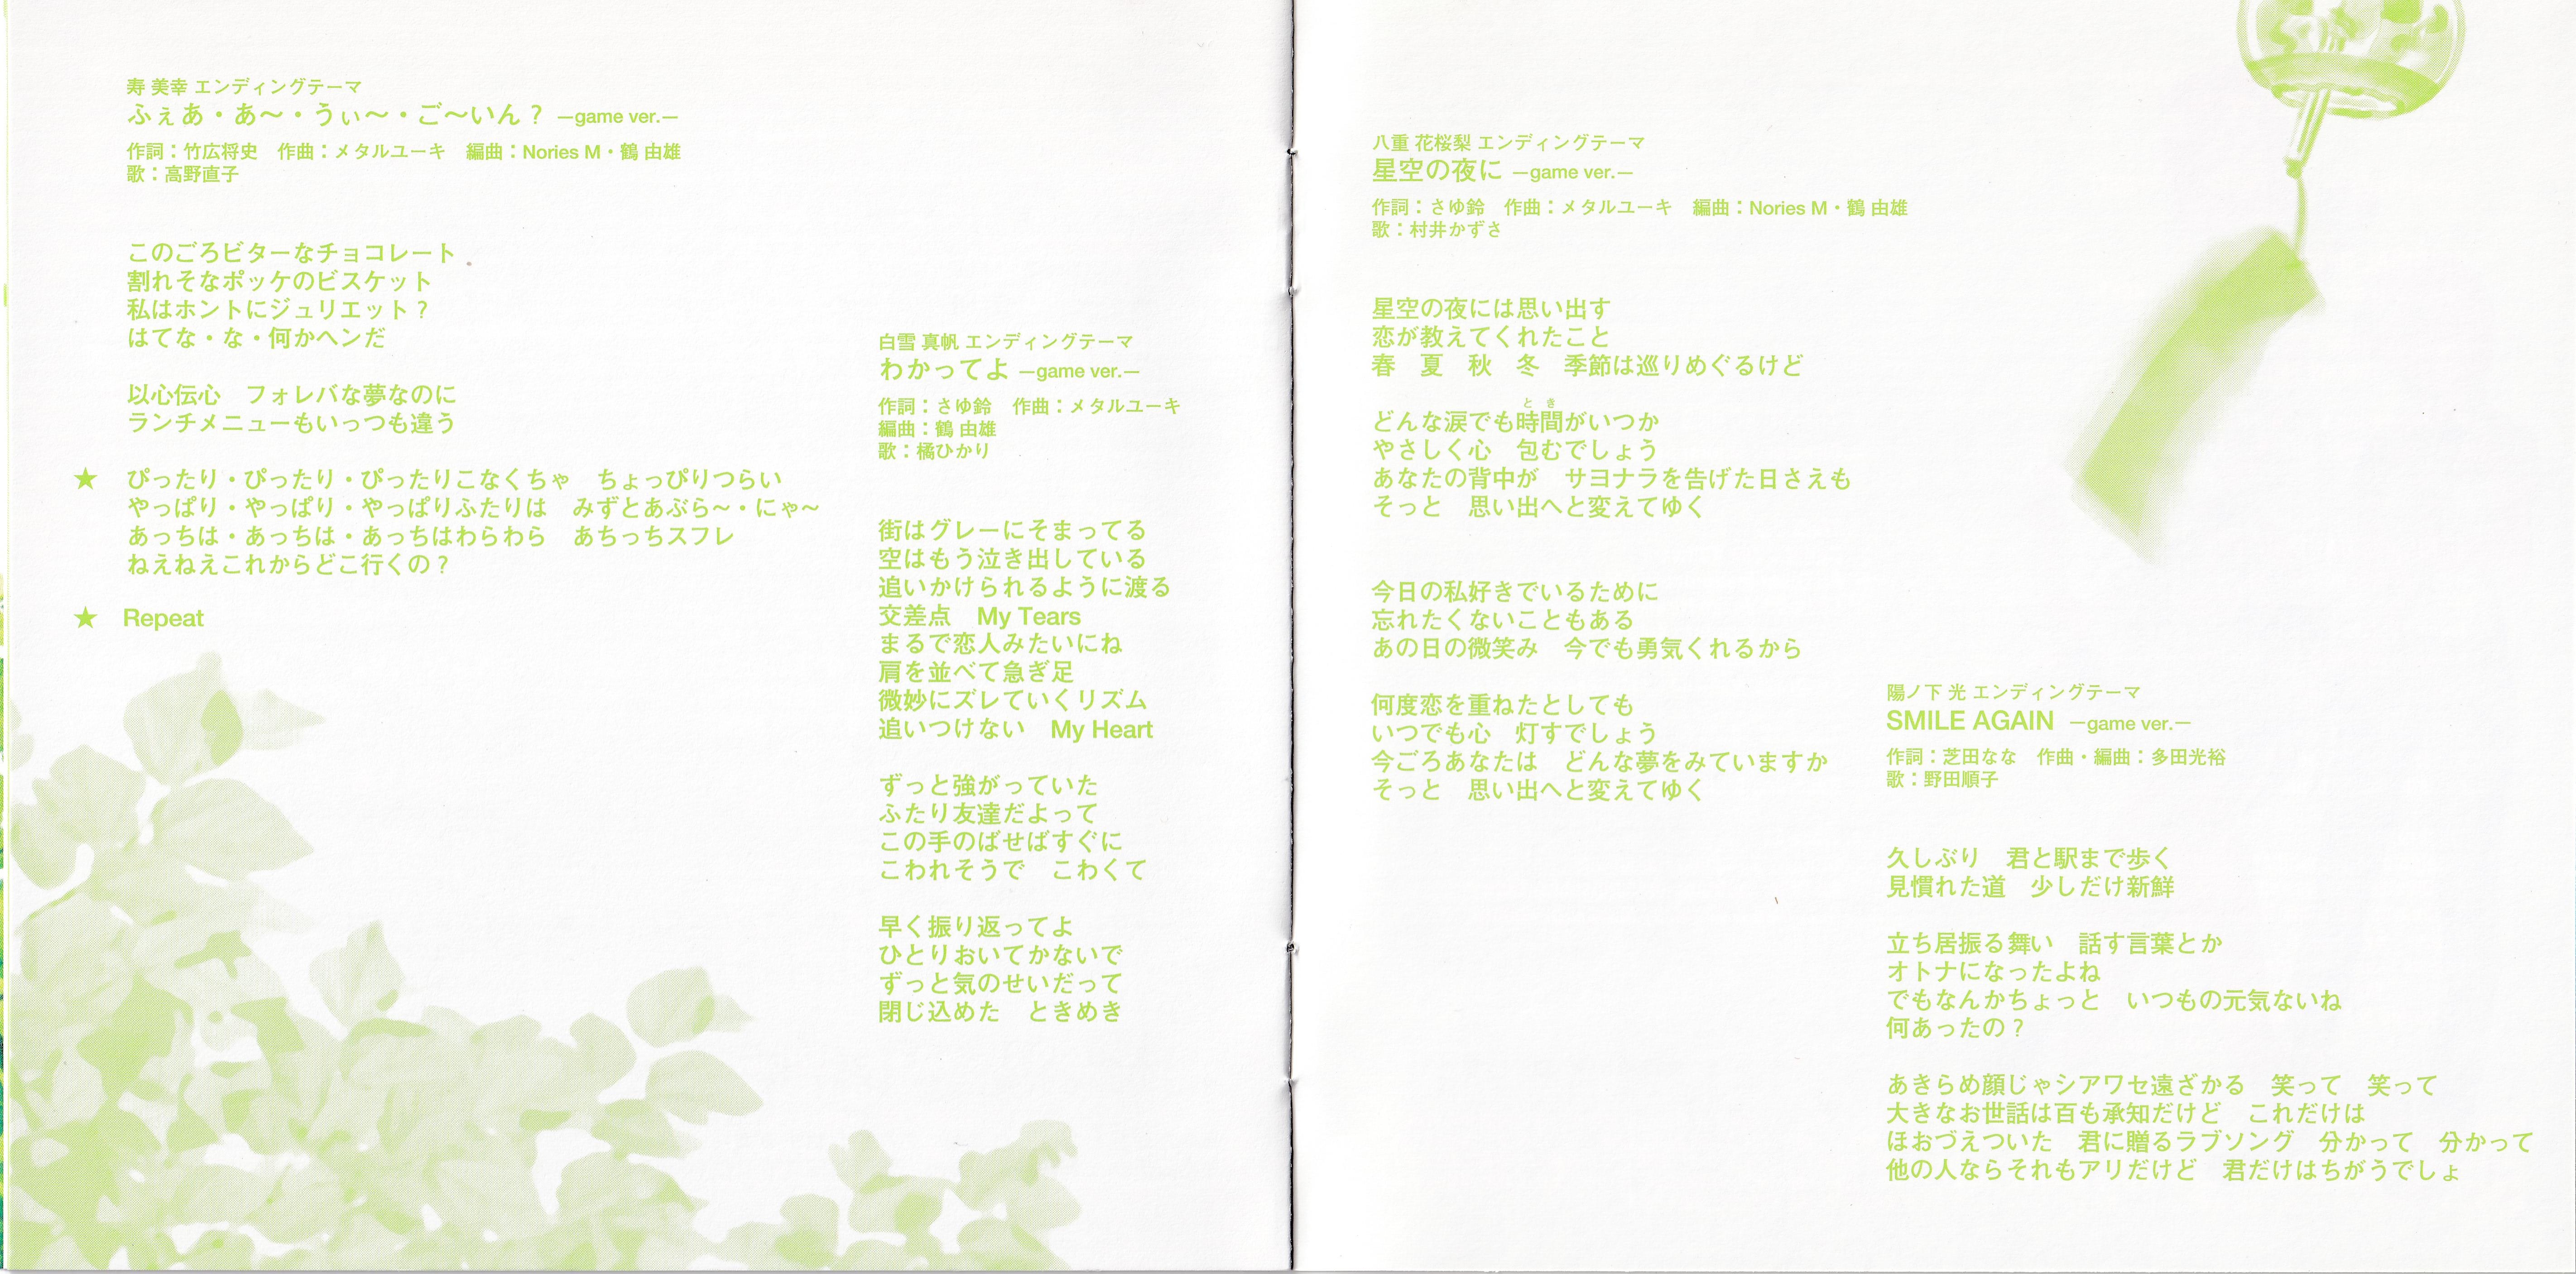 寿 美幸 エンディングテーマ
ふぇあ・あ～・うぃ～・ご～いん？ ―game ver.―
作詞：竹広将史　作曲：メタルユーキ　編曲：Nories M・鶴 由雄
歌：高野直子
このごろビターなチョコレート
割れそなポッケのビスケット
私はホントにジュリエット？
はてな・な・何かヘンだ
以心伝心　フォレバな夢なのに
ランチメニューもいっつも違う
★ ぴったり・ぴったり・ぴったりこなくちゃ　ちょっぴりつらい
やっぱり・やっぱり・やっぱりふたりは　みずとあぶら～・にゃ～
あっちは・あっちは・あっちはわらわら　あちっちスフレ
ねえねえこれからどこ行くの？
★ Repeat
白雪 真帆 エンディングテーマ
わかってよ ―game ver.―
作詞：さゆ鈴　作曲：メタルユーキ
編曲：鶴 由雄
歌：橘ひかり
街はグレーにそまってる
空はもう泣き出している
追いかけられるように渡る
交差点　My Tears
まるで恋人みたいにね
肩を並べて急ぎ足
微妙にズレていくリズム
追いつけない　My Heart
ずっと強がっていた
ふたり友達だよって
この手のばせばすぐに
こわれそうで　こわくて
早く振り返ってよ
ひとりおいてかないで
ずっと気のせいだって
閉じ込めた　ときめき
八重 花桜梨 エンディングテーマ
星空の夜に ―game ver.―
作詞：さゆ鈴　作曲：メタルユーキ　編曲：Nories M・鶴 由雄
歌：村井かずさ
星空の夜には思い出す
恋が教えてくれたこと
春　夏　秋　冬　季節は巡りめぐるけど
とき
どんな涙でも時間がいつか
やさしく心　包むでしょう
あなたの背中が　サヨナラを告げた日さえも
そっと　思い出へと変えてゆく
今日の私好きでいるために
忘れたくないこともある
あの日の微笑み　今でも勇気くれるから
何度恋を重ねたとしても
いつでも心　灯すでしょう
今ごろあなたは　どんな夢をみていますか
そっと　思い出へと変えてゆく
陽ノ下 光 エンディングテーマ
SMILE AGAIN ―game ver.―
作詞：芝田なな　作曲・編曲：多田光裕
歌：野田順子
久しぶり　君と駅まで歩く
見慣れた道　少しだけ新鮮
立ち居振る舞い　話す言葉とか
オトナになったよね
でもなんかちょっと　いつもの元気ないね
何あったの？
あきらめ顔じゃシアワセ遠ざかる　笑って　笑って
大きなお世話は百も承知だけど　これだけは
ほおづえついた　君に贈るラブソング　分かって　分かって
他の人ならそれもアリだけど　君だけはちがうでしょ